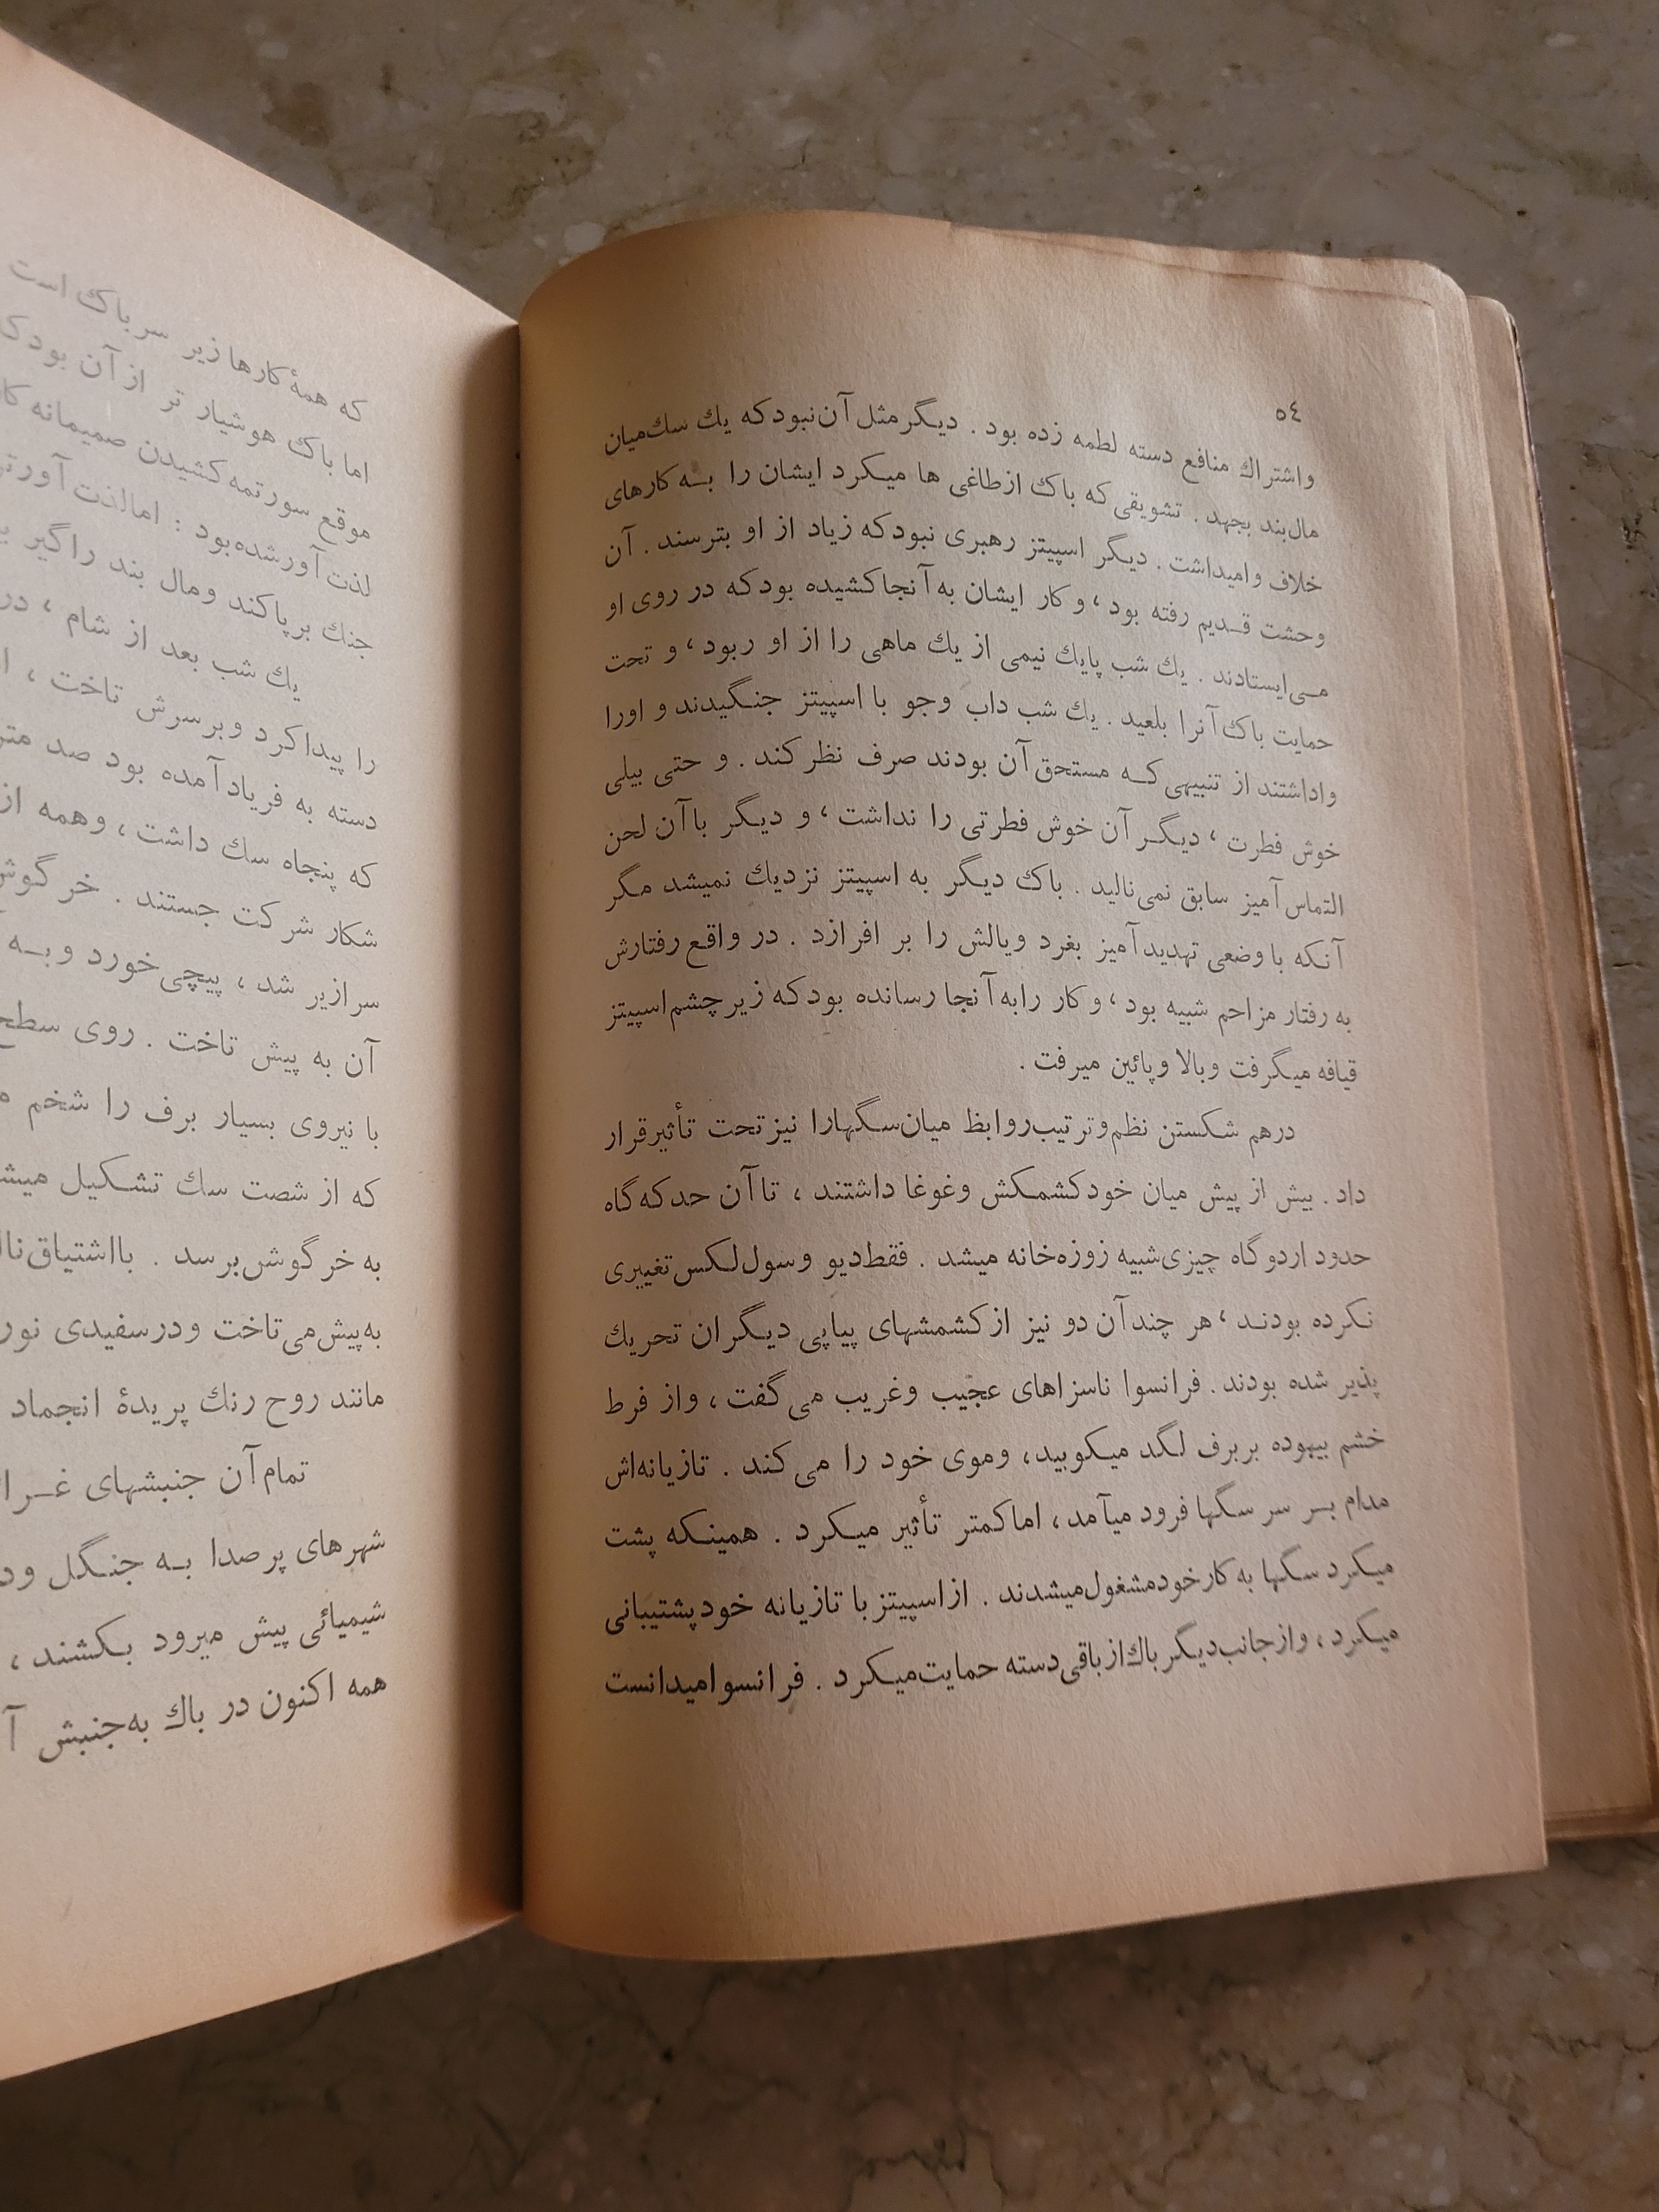 ٥٤
واشتراك منافع دسته لطمه زده بود . دیگر مثل آن نبود که يك سك میان
مال‌بند بجهد . تشویقی که باك از طاغی ها میکرد ایشان را بـه کارهای
خلاف وامیداشت . دیگر اسپیتز رهبری نبود که زیاد از او بترسند . آن
وحشت قـدیم رفته بود ، و کار ایشان به آنجا کشیده بود که در روی او
مـی‌ایستادند . يك شب پايك نیمی از يك ماهی را از او ربود ، و تحت
حمایت باك آنرا بلعید . يك شب داب وجو با اسپیتز جنگیدند و اورا
واداشتند از تنبیهی کـه مستحق آن بودند صرف نظر کند . و حتی بیلی
خوش فطرت ، دیگر آن خوش فطرتی را نداشت ، و دیگر با آن لحن
التماس آمیز سابق نمی‌نالید . باك دیگر به اسپیتز نزديك نمیشد مگر
آنکه با وضعی تهدید آمیز بغرد و یالش را بر افرازد . در واقع رفتارش
به رفتار مزاحم شبیه بود ، و کار رابه آنجا رسانده بود که زیر چشم اسپیتز
قیافه میگرفت وبالا وپائین میرفت .
درهم شکستن نظم‌وترتیب روابظ میان سگهارا نیز تحت تأثیر قرار
داد . بیش از پیش میان خود کشمکش وغوغا داشتند ، تا آن حد که گاه
حدود اردوگاه چیزی شبیه زوزه‌خانه میشد . فقط دیو وسول لکس تغییری
نکرده بودند ، هر چند آن دو نیز از کشمشهای پیاپی دیگران تحريك
پذیر شده بودند . فرانسوا ناسزاهای عجیب وغریب می‌گفت ، واز فرط
خشم بیهوده بربرف لگد میکوبید، وموی خود را می‌کند . تازیانه‌اش
مدام بـر سر سگها فرود میآمد ، اما کمتر تأثیر میکرد . همینکه پشت
میکرد سگها به کار خود مشغول میشدند . از اسپیتز با تازیانه خود پشتیبانی
میکرد ، واز جانب دیگر باك از باقی دسته حمایت میکرد . فرانسوا میدانست
که همهٔ کارها زیر سر باك است
اما باك هوشیار تر از آن بود
موقع سورتمه کشیدن صمیمانه
لذت آور شده بود : اما لذت
جنك برپا کند ومال بند را گیر
يك شب بعد از شام ، در
را پیدا کرد وبرسرش تاخت ،
دسته به فریاد آمده بود صد
که پنجاه سك داشت ، وهمه از
شکار شرکت جستند . خرگوش
سرازیر شد ، پیچی خورد وبـه
آن به پیش تاخت . روی
با نیروی بسیار برف را شخم
که از شصت سك تشکیل
به خرگوش برسد . با اشتیاق
به پیش می‌تاخت ودر سفیدی نور
مانند روح رنك پریدهٔ انجماد
تمام آن جنبشهای
شهرهای پر صدا بـه جنگل
شیمیائی پیش میرود بکشند ،
همه اکنون در باك به جنبش